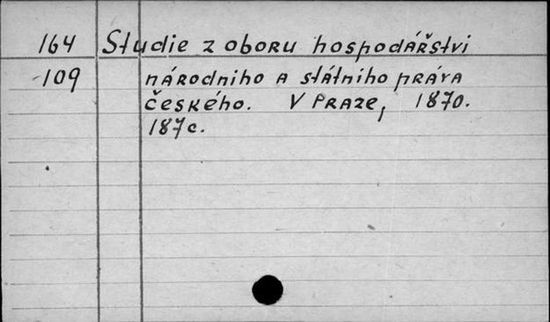 164 Studie z oboru hospodářství
109 národního a státního práva
českého. V Praze, 1870.
187c.